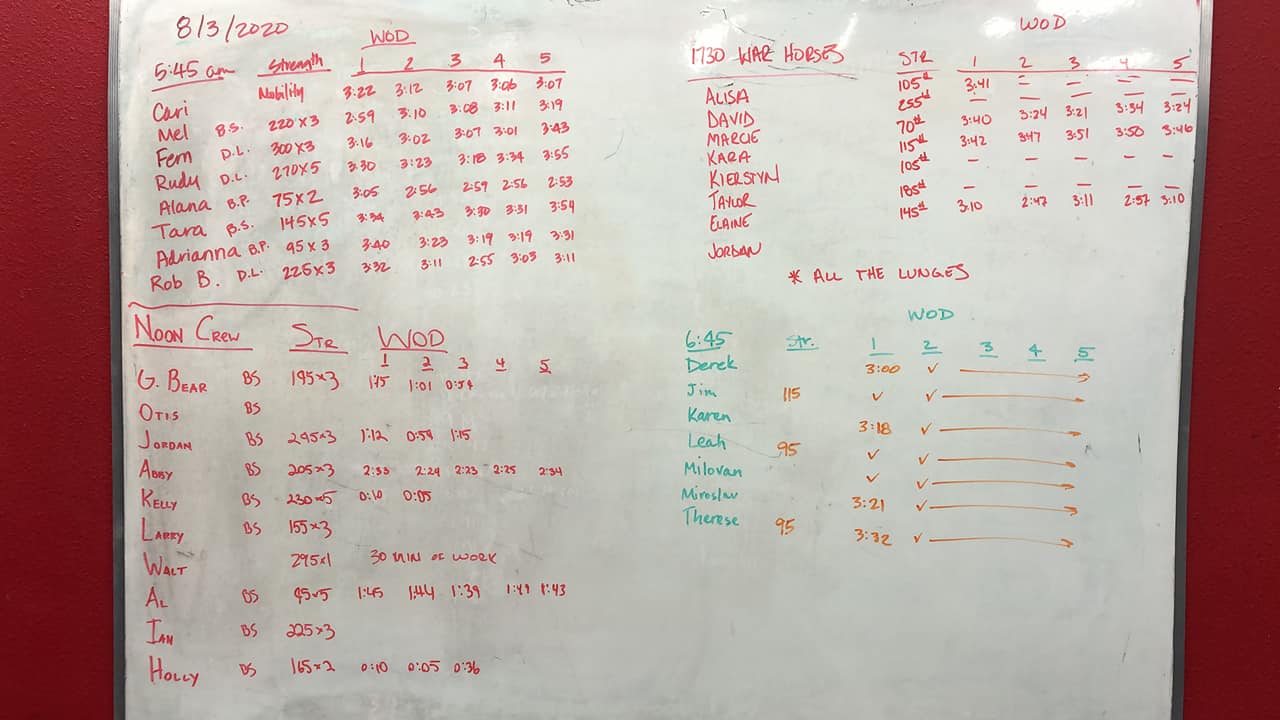 8/3/2020
WOD
5:45 am Strength 1 2 3 4 5
Cari Mobility 3:22 3:12 3:07 3:06 3:07
Mel B.S. 220x3 2:59 3:10 3:08 3:11 3:19
Fern D.L. 300x3 3:16 3:02 3:07 3:01 3:43
Rudy D.L. 270x5 3:30 3:23 3:18 3:34 3:55
Alana B.P. 75x2 3:05 2:56 2:59 2:56 2:53
Tara B.S. 145x5 3:34 3:43 3:30 3:31 3:54
Adrianna B.P. 95x3 3:40 3:23 3:19 3:19 3:31
Rob B. D.L. 225x3 3:32 3:11 2:55 3:03 3:11
NOON CREW STR WOD
1 2 3 4 5
G. BEAR BS 195x3 1:01
OTIS BS
JORDAN BS 295x3 1:12 0:59 1:15
ABBY BS 205x3 2:33 2:29 2:23 2:25 2:34
KELLY BS 230x5 0:10 0:05
LARRY BS 155x3
WALT 295x1 30 MIN OF WORK
AL BS 95x5 1:45 1:44 1:39 1:43
IAN BS 225x3
HOLLY BS 165x2 0:10 0:05 0:36
WOD
1730 WAR HORSES STR 1 2 3 4 5
ALISA 105# 3:41 - - - -
DAVID 255# - - - - -
MARCIE 70# 3:40 3:24 3:21 3:34 3:24
KARA 115# 3:42 3:47 3:51 3:50 3:46
KIERSTYN 105# - - - - -
TAYLOR 185# - - - - -
ELAINE 145# 3:10 2:47 3:11 2:57 3:10
JORDAN
* ALL THE LUNGES
WOD
6:45 Str. 1 2 3 4 5
Derek 3:00 ✓ →
Jim 115 ✓ ✓ →
Karen 3:18 ✓ →
Leah 95 ✓ ✓ →
Milovan ✓ ✓ →
Miroslav 3:21 ✓ →
Therese 95 3:32 ✓ →